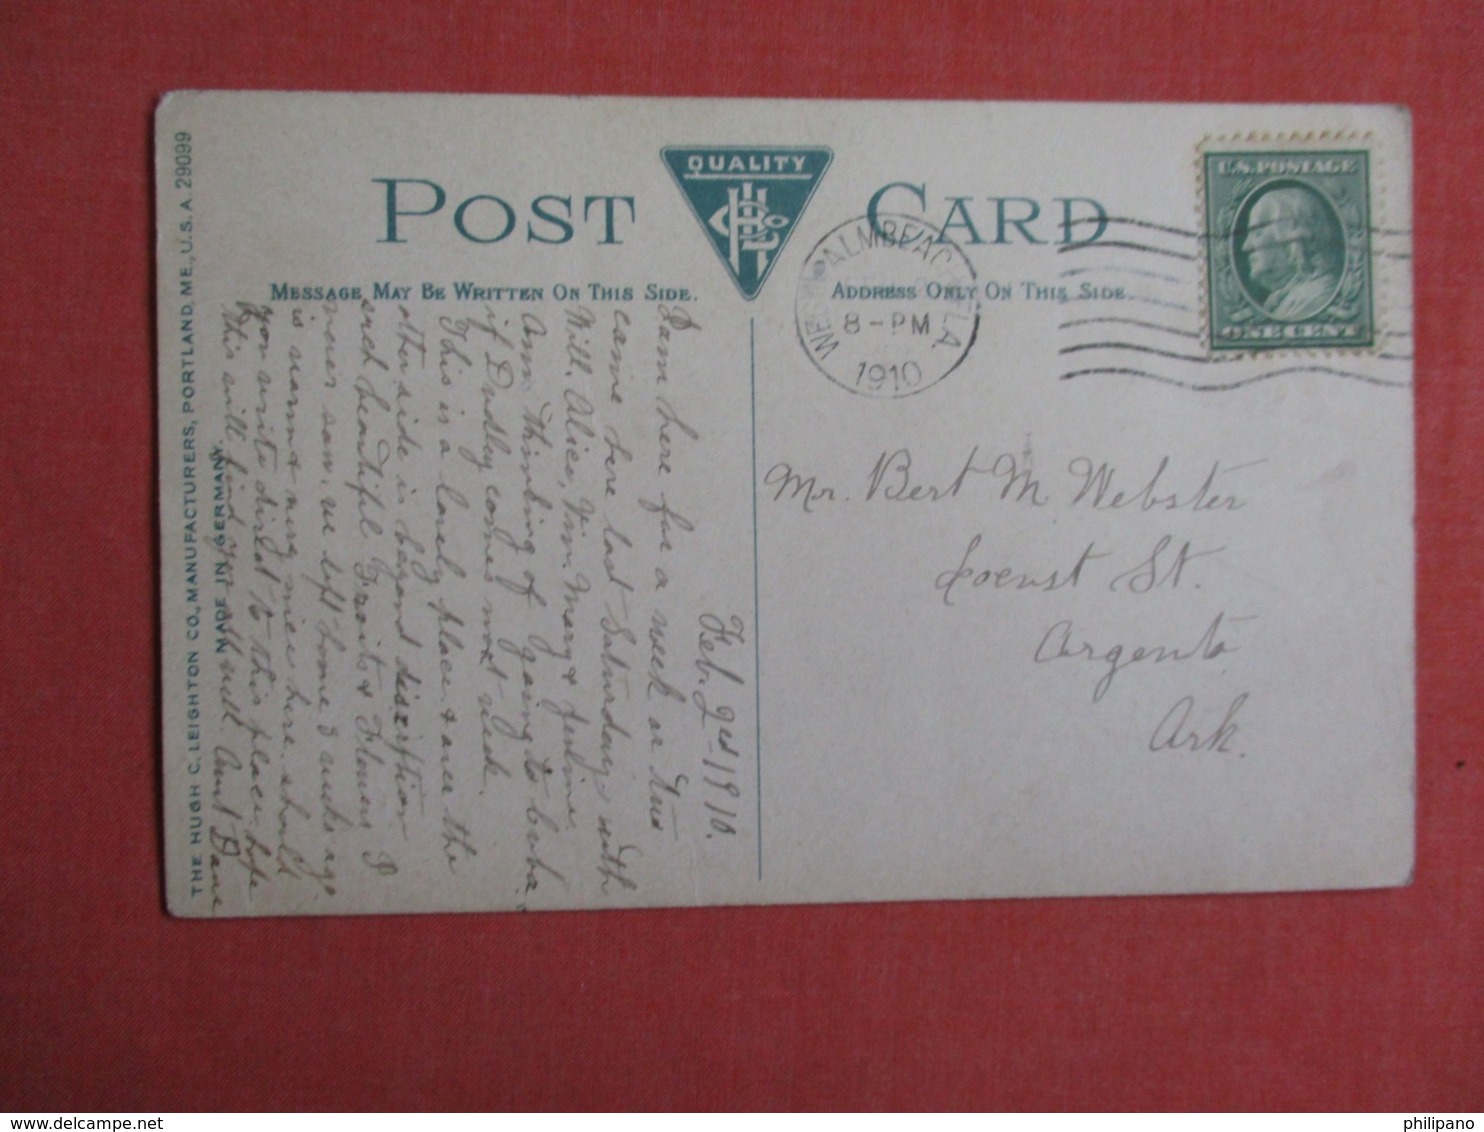 QUALITY
POST CARD
MESSAGE MAY BE WRITTEN ON THIS SIDE.
ADDRESS ONLY ON THIS SIDE.
U.S. POSTAGE
ONE CENT
WEST PALM BEACH, FLA.
8-PM
1910
THE HUGH C. LEIGHTON CO., MANUFACTURERS, PORTLAND, ME., U.S.A. 29099
MADE IN GERMANY.
Feb. 1910.
I am here for a week or two
came here last Saturday with
Will. Alice, Mary &
Am thinking of going to
if Dudley comes next week.
This is a lovely place & over the
other side is beyond discription
such beautiful Fruits & Flowers I
never saw. we left home 3 weeks ago
is warm & very nice here. should
you write direct to this place. hope
this will find you all well. Aunt
Mr. Bert M. Webster
Locust St.
Argenta
Ark.
philipano